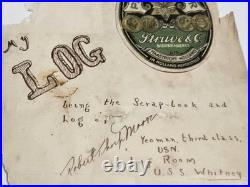 My
LOG
Struve & C
being the Scrap-book and
Log of
Robert
Moore
Yeoman, third class,
USN.
Room
U.S.S Whitney